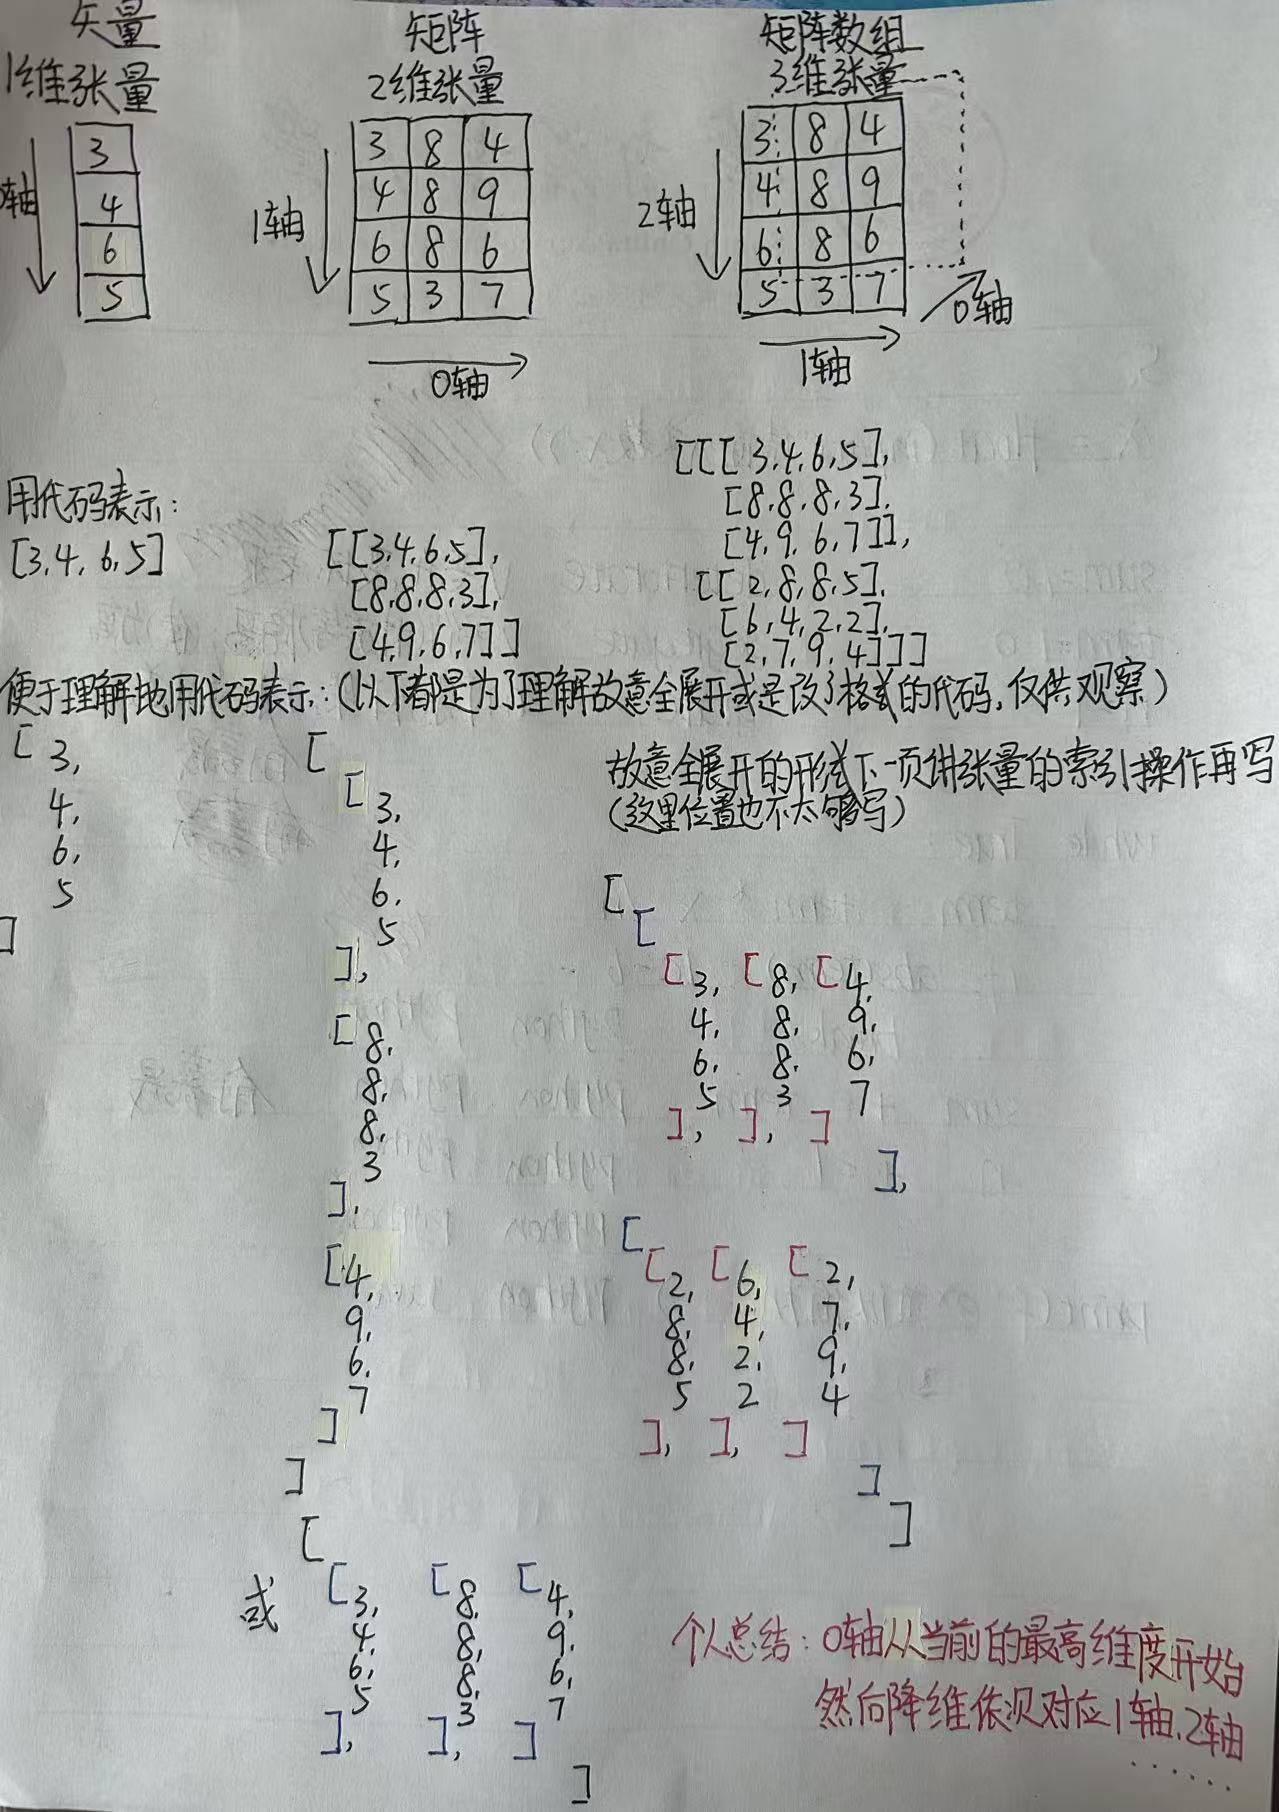 矢量
1维张量
0轴
3
4
6
5
矩阵
2维张量
1轴
3 8 4
4 8 9
6 8 6
5 3 7
0轴
矩阵数组
3维张量
2轴
3 8 4
4 8 9
6 8 6
5 3 7
0轴
1轴
用代码表示:
[3,4,6,5]
[[3,4,6,5],
[8,8,8,3],
[4,9,6,7]]
[[[3,4,6,5],
[8,8,8,3],
[4,9,6,7]],
[[2,8,8,5],
[6,4,2,2],
[2,7,9,4]]]
便于理解地用代码表示:(以下都是为了理解故意全展开或是改了格式的代码,仅供观察)
[
3,
4,
6,
5
]
[
[
3,
4,
6,
5
],
[
8,
8,
8,
3
],
[
4,
9,
6,
7
]
]
或
[
[3, [8, [4,
4, 8, 9,
6, 8, 6,
5 3 7
], ], ]
]
故意全展开的形式下一页讲张量的索引操作再写
(这里位置也不太够写)
[
[
[3, [8, [4,
4, 8, 9,
6, 8, 6,
5 3 7
], ], ]
],
[
[2, [6, [2,
8, 4, 7,
8, 2, 9,
5 2 4
], ], ]
]
]
个人总结:0轴从当前的最高维度开始
然后降维依次对应1轴、2轴
······